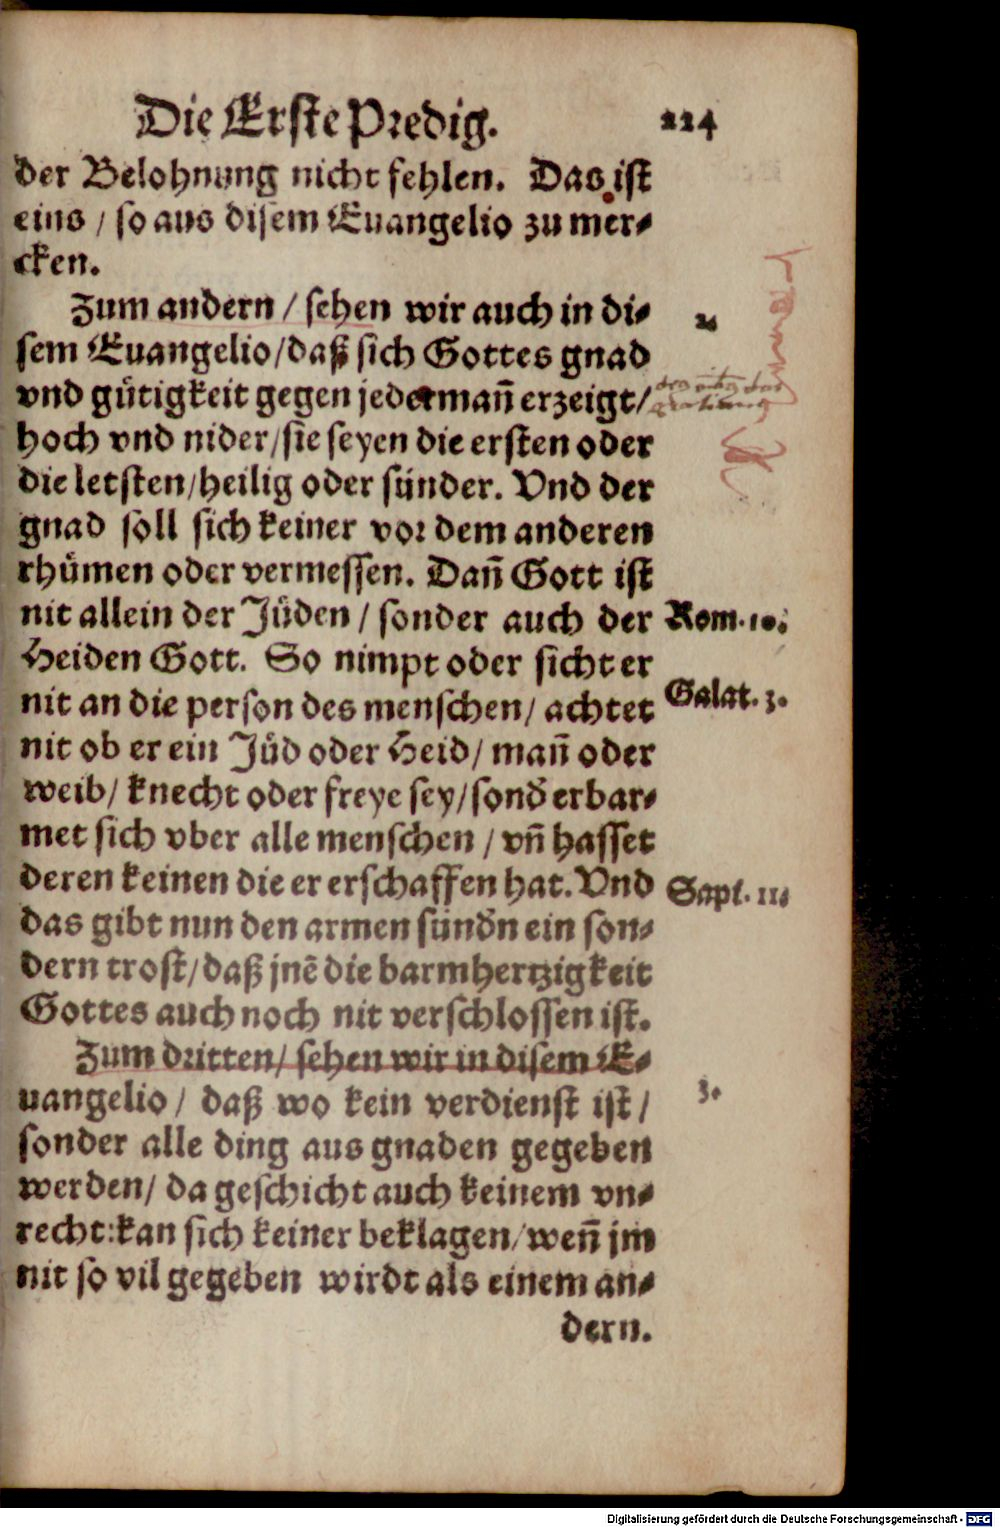 Die Erste Predig. 224
der Belohnung nicht fehlen. Das ist
eins / so aus disem Euangelio zu mer⸗
cken.
Zum andern / sehen wir auch in di⸗ 2.
sem Euangelio/daß sich Gottes gnad
vnd gütigkeit gegen jedermañ erzeigt/
hoch vnd nider/sie seyen die ersten oder
die letsten/heilig oder sünder. Vnd der
gnad soll sich keiner vor dem anderen
rhůmen oder vermessen. Dañ Gott ist
nit allein der Jůden / sonder auch der Rom. 10.
Heiden Gott. So nimpt oder sicht er
nit an die person des menschen/ achtet Galat. 3.
nit ob er ein Jůd oder Heid/ mañ oder
weib/ knecht oder freye sey/sond̄ erbar⸗
met sich vber alle menschen / vñ hasset
deren keinen die er erschaffen hat. Vnd Sapt. 11.
das gibt nun den armen sünd̄n ein son⸗
dern trost/daß jnē die barmhertzigkeit
Gottes auch noch nit verschlossen ist.
Zum dritten/ sehen wir in disem E⸗
uangelio / daß wo kein verdienst ist / 3.
sonder alle ding aus gnaden gegeben
werden/ da geschicht auch keinem vn⸗
recht:kan sich keiner beklagen/weñ jm
nit so vil gegeben wirdt als einem an⸗
dern.
Digitalisierung gefördert durch die Deutsche Forschungsgemeinschaft - DFG